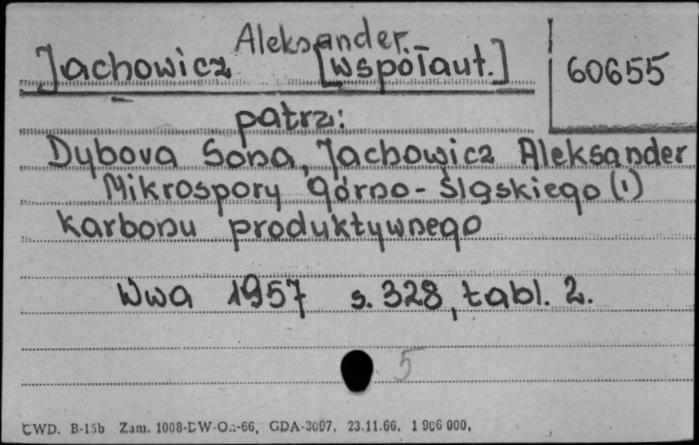 Jachowicz Aleksander
[współaut.] 60655
patrz:
Dybova Sona, Jachowicz Aleksander
Mikrospory górno-śląskiego (!)
karbonu produktywnego
Wwa 1957 s. 328, tabl. 2.
5
CWD. B-15b Zam. 1008-DW-Oz-66, GDA-3097, 23.11.66, 1 906 000,